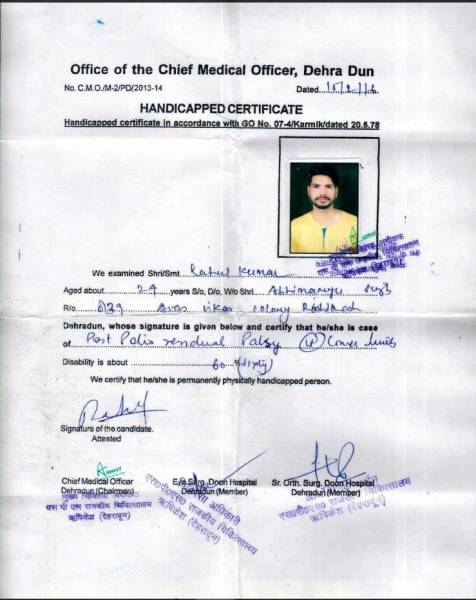 Office of the Chief Medical Officer, Dehra Dun
No. C.M.O./M-2/PD/2013-14 Dated 15/2/16
HANDICAPPED CERTIFICATE
Handicapped certificate in accordance with GO No. 07-4/Karmik/dated 20.5.78
We examined Shri/Smt. Rahul Kumar
Aged about 24 years S/o, D/o, W/o Shri Abhimanyu
R/o colony
Dehradun, whose signature is given below and certify that he/she is case
of Post Polio residual Palsy Lower limbs
Disability is about 60% (Sixty)
We certify that he/she is permanently physically handicapped person.
Signature of the candidate.
Attested
Chief Medical Officer Surg. Doon Hospital Sr. Orth. Surg. Doon Hospital
Dehradun (Chairman) Dehradun (Member) Dehradun (Member)
मुख्य चिकित्सा
एस पी एस राजकीय चिकित्सालय
ऋषिकेश (देहरादून)
एस०पी०एस० राजकीय चिकित्सालय
ऋषिकेश (देहरादून)
एस०पी०एस० राजकीय चिकित्सालय
ऋषिकेश (देहरादून)